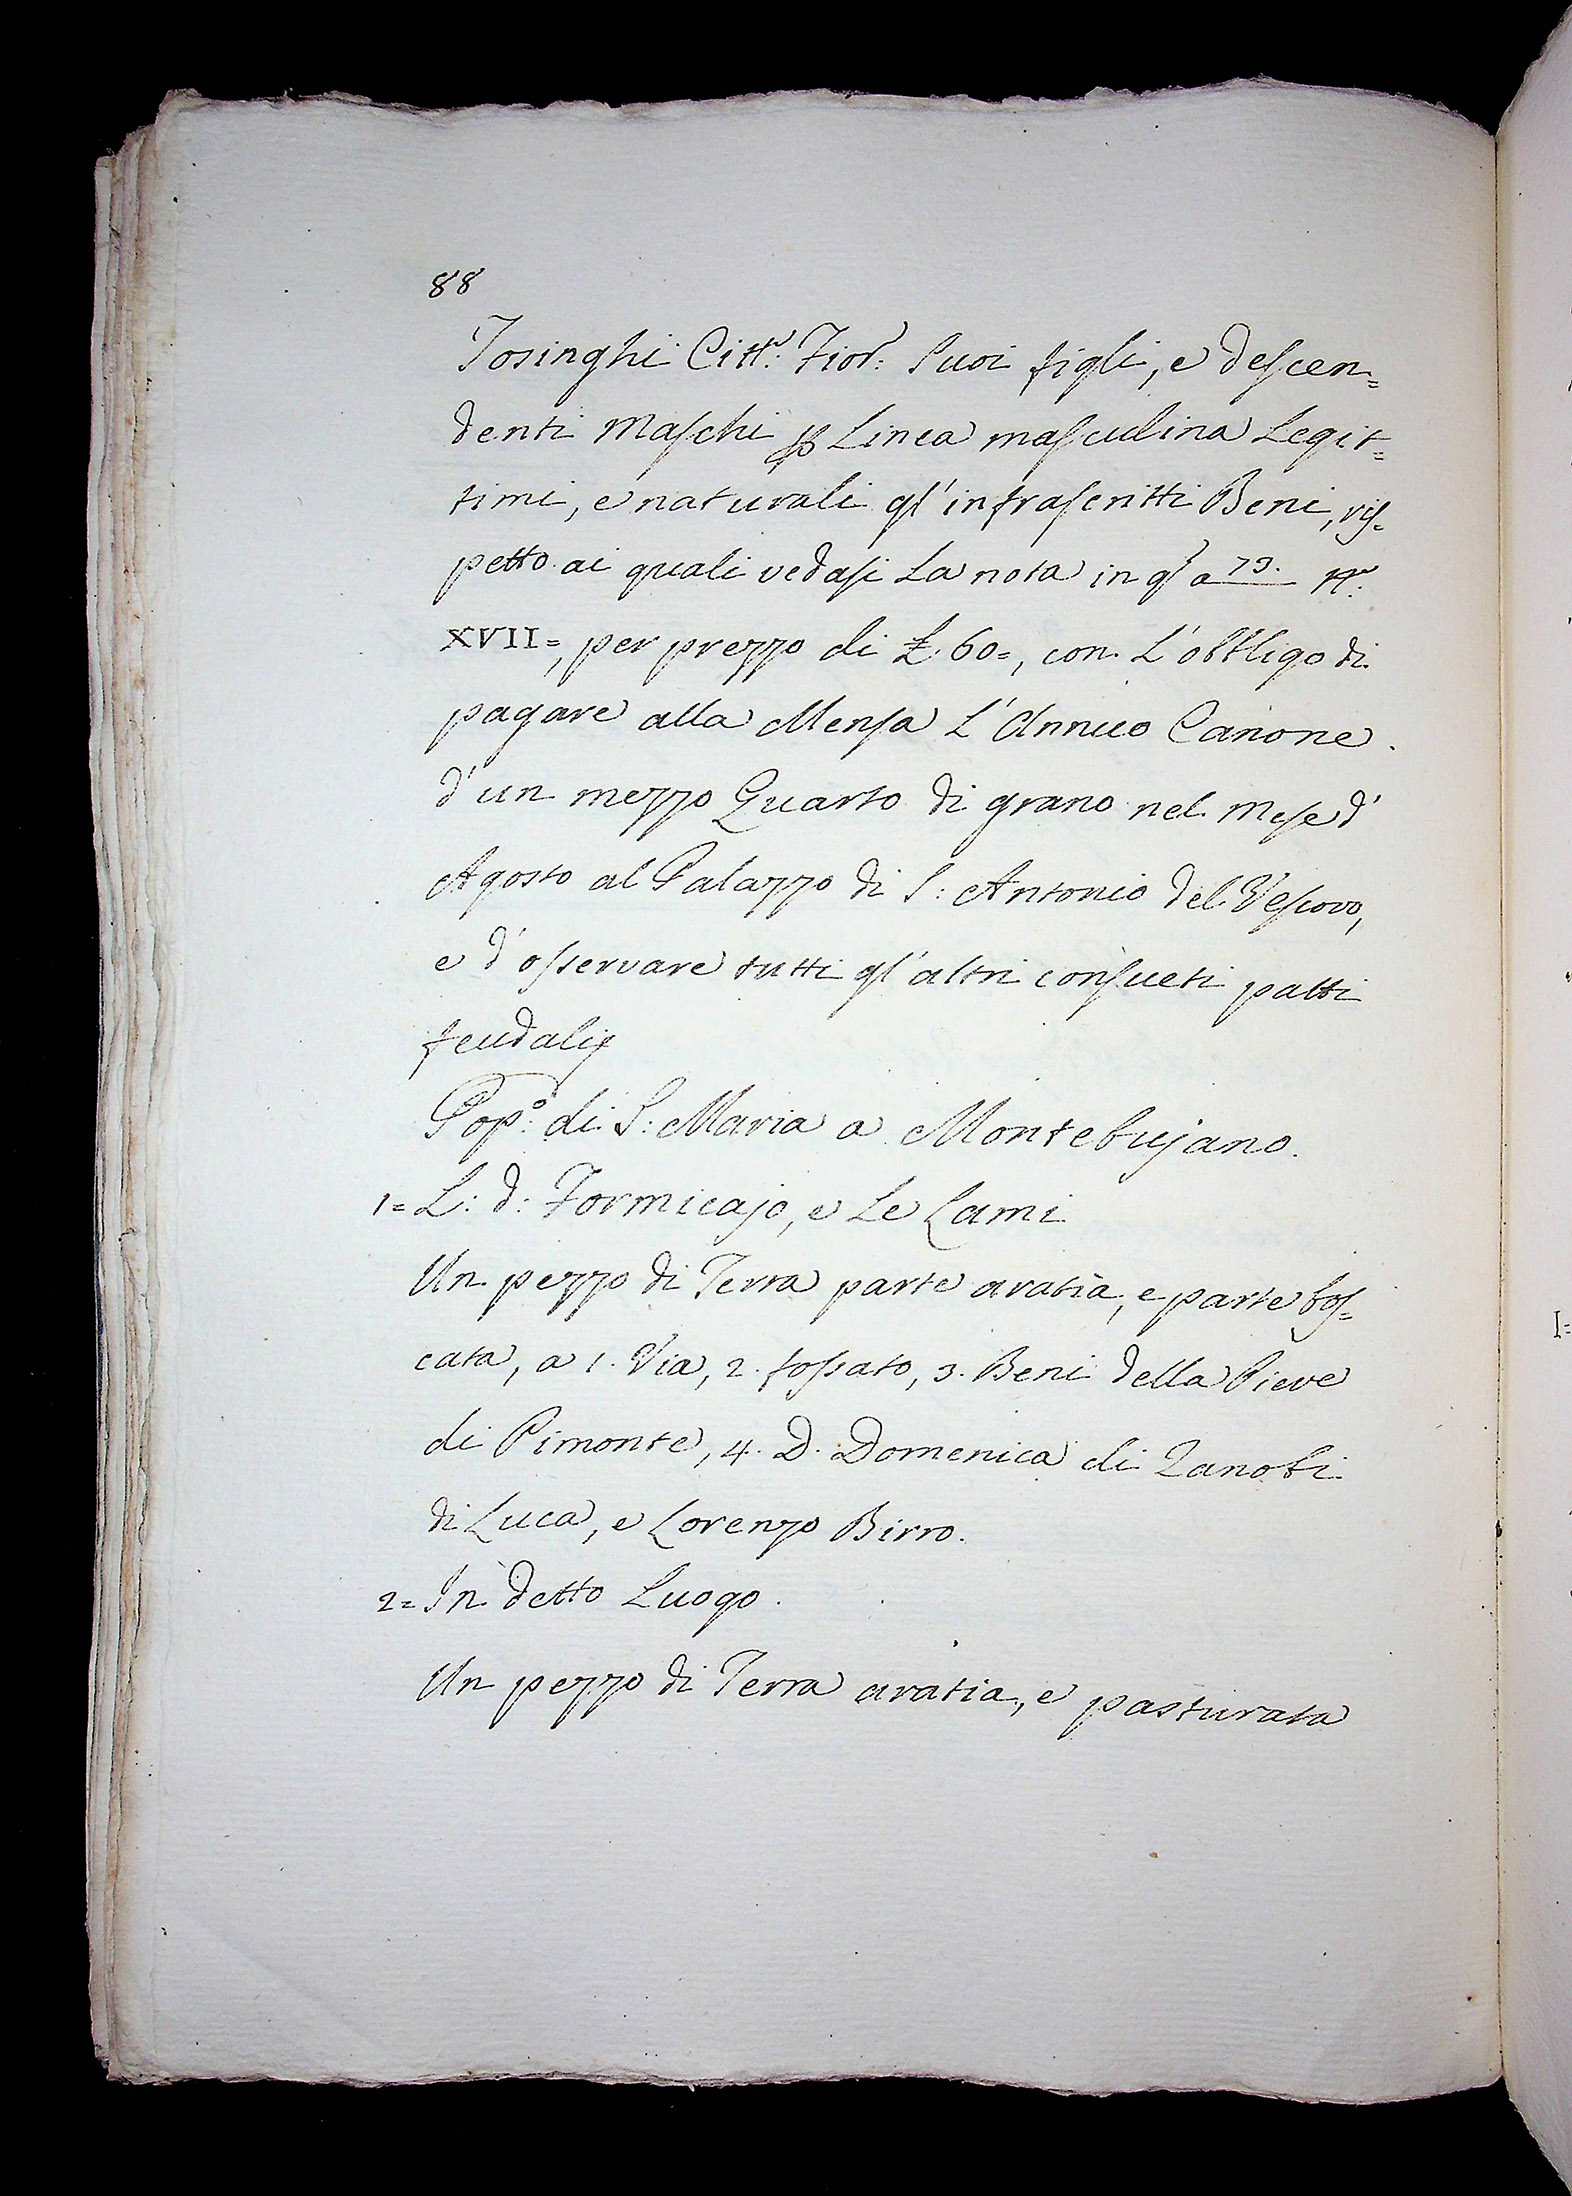 88
Tosinghi Citt.º: Fior.º: Suoi figli, e descen=
denti Maschi p Linea masculina Legit=
timi, e naturali gl' infrascritti Beni, ris=
petto ai quali vedasi La nota in q.º a 79. N.º
XVII=, per prezzo di £ 60=, con L'obbligo di
pagare alla Mensa L'Annuo Canone
d'un mezzo Quarto di grano nel Mese d'
Agosto al Palazzo di S: Antonio del Vescovo,
e d'osservare tutti gl'altri consueti patti
feudali
Pop.º: di S: Maria a Montebujano.
1= L: d: Formicajo, e Le Lami
Un pezzo di Terra parte aratia, e parte bos=
cata, a 1. Via, 2. fossato, 3. Beni della Pieve
di Pimonte, 4. D. Domenica di Zanobi
di Luca, e Lorenzo Birro.
2= In detto Luogo.
Un pezzo di Terra aratia, e pasturata
I=